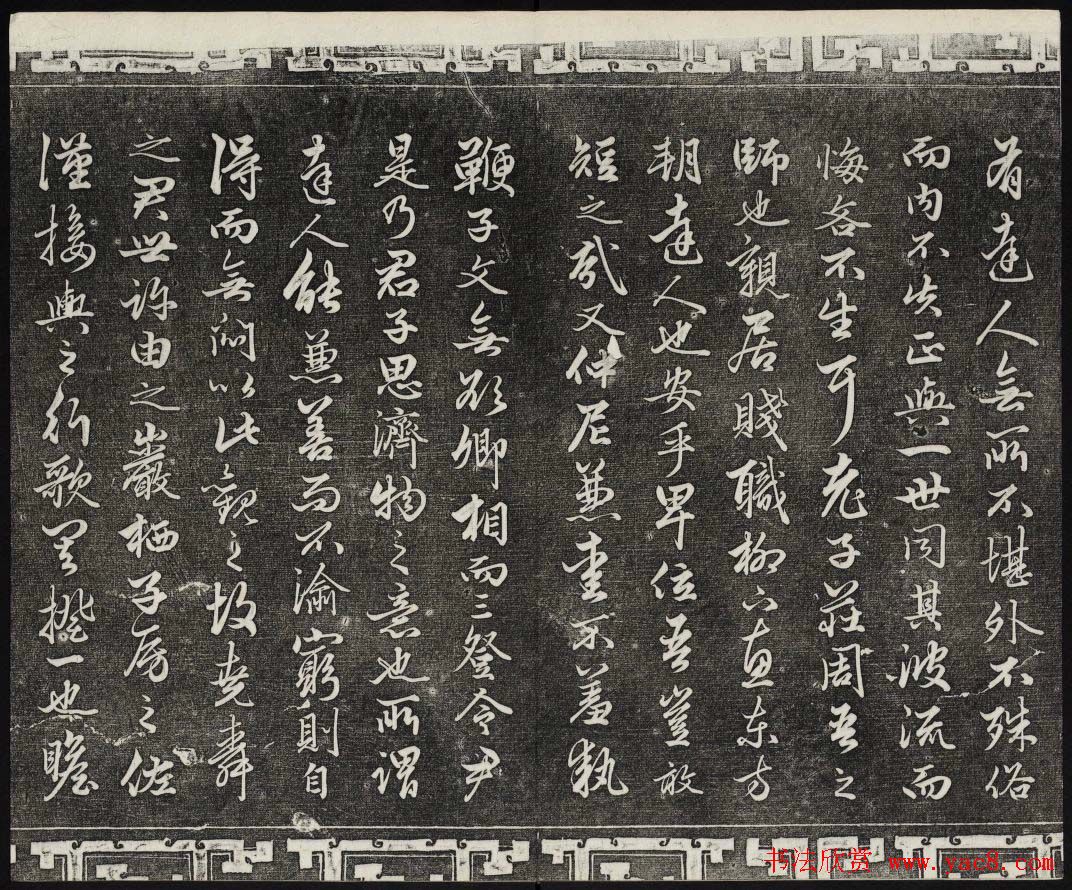 有達人無所不堪外不殊俗
而內不失正與一世同其波流而
悔吝不生耳老子莊周吾之
師也親居賤職柳下惠東方
朔達人也安乎卑位吾豈敢
短之哉又仲尼兼愛不羞執
鞭子文無欲卿相而三登令尹
是乃君子思濟物之意也所謂
達人能兼善而不渝窮則自
得而無悶以此觀之故堯舜
之君世許由之巖栖子房之佐
漢接輿之行歌其揆一也瞻
书法欣赏 www.yac8.com